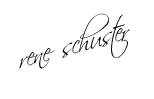 rene schuster